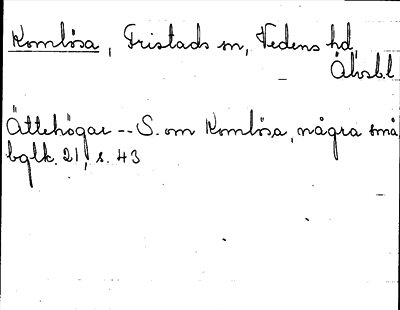 Komlösa, Fristads sn, Vedens hd,
Älvsb.l
Ättehögar -- S. om Komlösa, några små
bglk. 21, s. 43